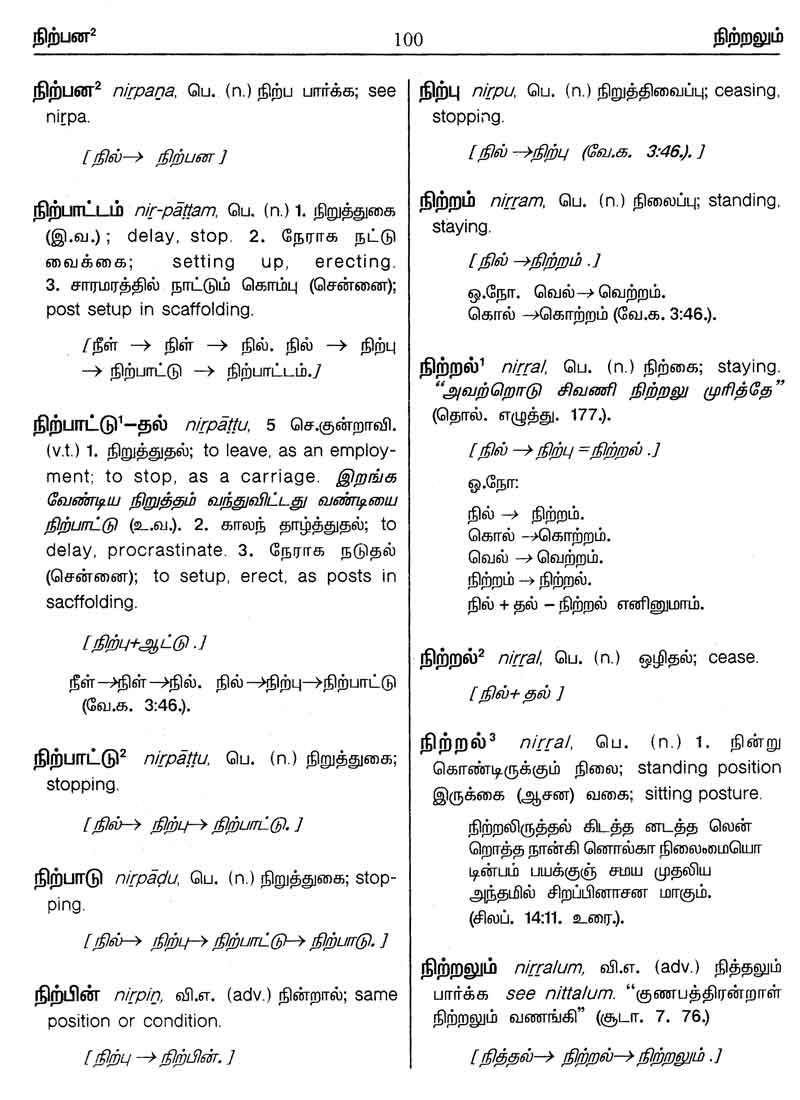 நிற்பன²
100
நிற்றலும்
நிற்பன² nirpaṉa, பெ. (n.) நிற்ப பார்க்க; see
nirpa.
[நில்→ நிற்பன ]
நிற்பாட்டம் nir-pāṭṭam, பெ. (n.) 1. நிறுத்துகை
(இ.வ.) ; delay, stop. 2. நேராக நட்டு
வைக்கை; setting up, erecting.
3. சாரமரத்தில் நாட்டும் கொம்பு (சென்னை);
post setup in scaffolding.
[நீள் → நிள் → நில். நில் → நிற்பு
→ நிற்பாட்டு → நிற்பாட்டம்.]
நிற்பாட்டு¹–தல் nirpāṭṭu, 5 செ.குன்றாவி.
(v.t.) 1. நிறுத்துதல்; to leave, as an employ-
ment; to stop, as a carriage. இறங்க
வேண்டிய நிறுத்தம் வந்துவிட்டது வண்டியை
நிற்பாட்டு (உ.வ.). 2. காலந் தாழ்த்துதல்; to
delay, procrastinate. 3. நேராக நடுதல்
(சென்னை); to setup, erect, as posts in
sacffolding.
[நிற்பு+ஆட்டு .]
நீள்→நிள்→நில். நில்→நிற்பு→நிற்பாட்டு
(வே.க. 3:46.).
நிற்பாட்டு² nirpāṭṭu, பெ. (n.) நிறுத்துகை;
stopping.
[நில்→ நிற்பு→ நிற்பாட்டு. ]
நிற்பாடு nirpāḍu, பெ. (n.) நிறுத்துகை; stop-
ping.
[நில்→ நிற்பு→ நிற்பாட்டு→ நிற்பாடு. ]
நிற்பின் nirpiṉ, வி.எ. (adv.) நின்றால்; same
position or condition.
[நிற்பு → நிற்பின். ]
நிற்பு niṟpu, பெ. (n.) நிறுத்திவைப்பு; ceasing,
stopping.
[நில் →நிற்பு (வே.க. 3:46.). ]
நிற்றம் niṟṟam, பெ. (n.) நிலைப்பு; standing,
staying.
[நில் →நிற்றம் .]
ஒ.நோ. வெல்→ வெற்றம்.
கொல் →கொற்றம் (வே.க. 3:46.).
நிற்றல்¹ niṟṟal, பெ. (n.) நிற்கை; staying.
“அவற்றொடு சிவணி நிற்றலு முரித்தே”
(தொல். எழுத்து. 177.).
[நில் → நிற்பு =நிற்றல் .]
ஒ.நோ:
நில் → நிற்றம்.
கொல் →கொற்றம்.
வெல் → வெற்றம்.
நிற்றம் → நிற்றல்.
நில் + தல் – நிற்றல் எனினுமாம்.
நிற்றல்² niṟṟal, பெ. (n.) ஒழிதல்; cease.
[நில்+ தல் ]
நிற்றல்³ niṟṟal, பெ. (n.) 1. நின்று
கொண்டிருக்கும் நிலை; standing position
இருக்கை (ஆசன) வகை; sitting posture.
நிற்றலிருத்தல் கிடத்த னடத்த லென்
றொத்த நான்கி னொல்கா நிலைமையொ
டின்பம் பயக்குஞ் சமய முதலிய
அந்தமில் சிறப்பினாசன மாகும்.
(சிலப். 14:11. உரை.).
நிற்றலும் niṟṟalum, வி.எ. (adv.) நித்தலும்
பார்க்க see nittalum. “குணபத்திரன்றாள்
நிற்றலும் வணங்கி” (சூடா. 7. 76.)
[நித்தல்→ நிற்றல்→ நிற்றலும் .]